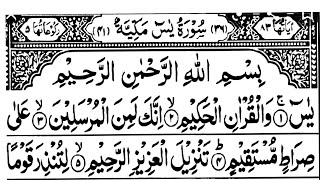 اٰيَاتُهَا ٨٣ (٣٦) سُوْرَةُ يٰسٓ مَكِّيَّةٌ (٤١) رُكُوْعَاتُهَا ٥
بِسْمِ اللّٰهِ الرَّحْمٰنِ الرَّحِيْمِ
يٰسٓ ۚ﴿١﴾ وَالْقُرْاٰنِ الْحَكِيْمِ ۙ﴿٢﴾ اِنَّكَ لَمِنَ الْمُرْسَلِيْنَ ۙ﴿٣﴾ عَلٰى
صِرَاطٍ مُّسْتَقِيْمٍ ؕ﴿٤﴾ تَنْزِيْلَ الْعَزِيْزِ الرَّحِيْمِ ۙ﴿٥﴾ لِتُنْذِرَ قَوْمًا